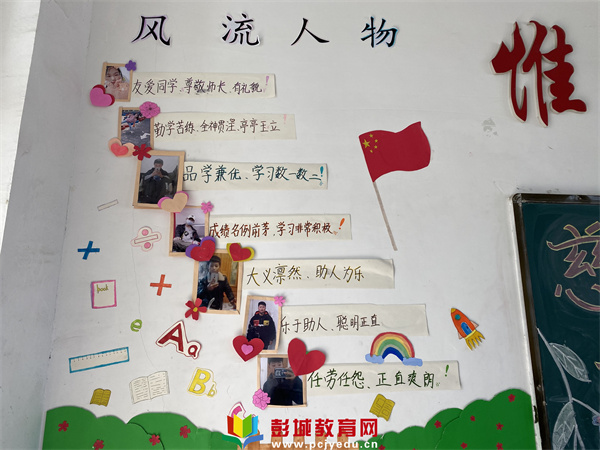 风流人物
惟
友爱同学、尊敬师长、有礼貌!
勤学苦练、全神贯注、亭亭玉立
品学兼优、学习数一数二!
成绩名列前茅、学习非常积极!
大义凛然、助人为乐
乐于助人、聪明正直
任劳任怨、正直爽朗!
Aa
Bb
慈
彭城教育网
www.pcjyedu.cn